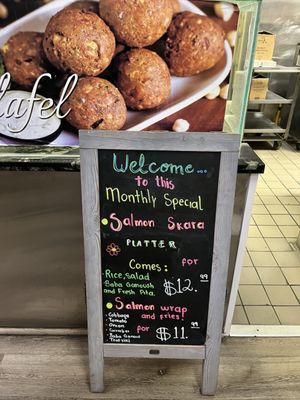 lafel
Welcome...
to this
Monthly Special
Salmon Skara
PLATTER
Comes: for
Rice, Salad
Baba Ganoush
and Fresh Pita.
$12.99
Salmon wrap
and fries!
Cabbage
Tomato
Onion
Cucumber
Baba Ganoush
for $11.99